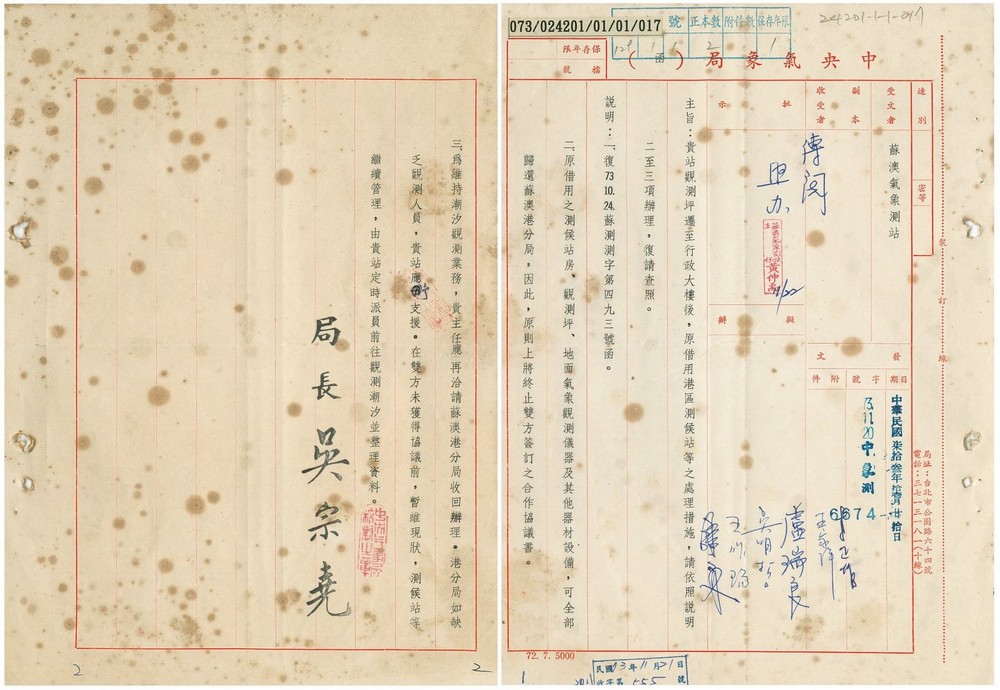 073/024201/01/01/017
號
正本數
附件數
保存年限
2
1
24201-1-1-017
保存年限
檔號
中央氣象局(函)
速別
密等
受文者
蘇澳氣象測站
副本收受者
批示
傳閱
照办
黃仲
11/22
擬辦
發文
日期
字號
附件
中華民國柒拾叁年拾壹月廿拾日
73.11.20中象測
6674
局址:台北市公園路六十四號
電話:三七一三一八一(十線)
裝
訂
線
主旨:貴站觀測坪遷至行政大樓後,原借用港區測候站等之處理措施,請依照說明
二至三項辦理,復請查照。
說明:一、復73.10.24.蘇測測字第四九三號函。
二、原借用之測候站房、觀測坪、地面氣象觀測儀器及其他器材設備,可全部
歸還蘇澳港分局,因此,原則上將終止雙方簽訂之合作協議書。
盧瑞良
72.7.5000
民國73年11月21日
收字第555號
1
三、為維持潮汐觀測業務,貴主任應再洽請蘇澳港分局收回辦理。港分局如缺
乏觀測人員,貴站應予支援。在雙方未獲得協議前,暫維現狀,測候站等
繼續管理,由貴站定時派員前往觀測潮汐並整理資料。
局長吳宗堯
2
2